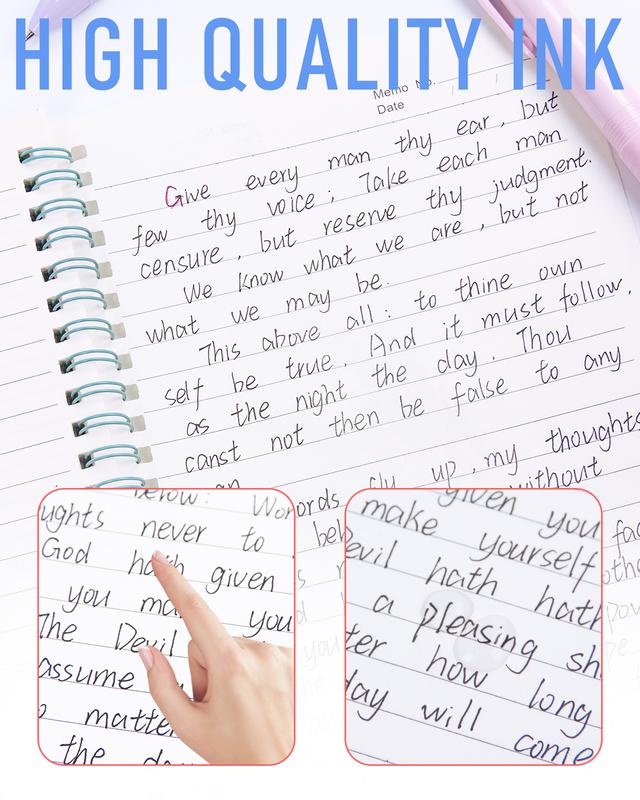 HIGH QUALITY INK
Memo No.
Date / /
Give every man thy ear, but
few thy voice ; Take each man
censure , but reserve thy judgment.
We know what we are , but not
what we may be.
This above all : to thine own
self be true. And it must follow,
as the night the day . Thou
canst not then be false to any
up , my thoughts
without
never to
God hath given
you you
The Devil
assume
matter
the
given you
make yourself
Devil hath hath
a pleasing
how long
day will come